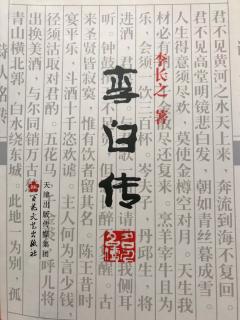 君不见黄河之水天上来 奔流到海不复回。
君不见高堂明镜悲白发 朝如青丝暮成雪。
人生得意须尽欢，莫使金樽空对月。天生我
材必有 复来。烹羊宰牛且为
乐，会须一饮三百杯。岑夫子，丹丘生，将
进酒，君 侧耳
听。钟 醒。古
来圣贤皆寂寞，惟有饮者留其名。陈王昔时
宴平乐，斗酒十千恣欢谑。主人何为言少钱
径须沽取对君酌。五花马 呼儿将
出换美酒，与尔同销万
青山横北郭，白水绕东城。此地一为别，孤
李长之 著
李白传
天津出版传媒集团
百花文艺出版社